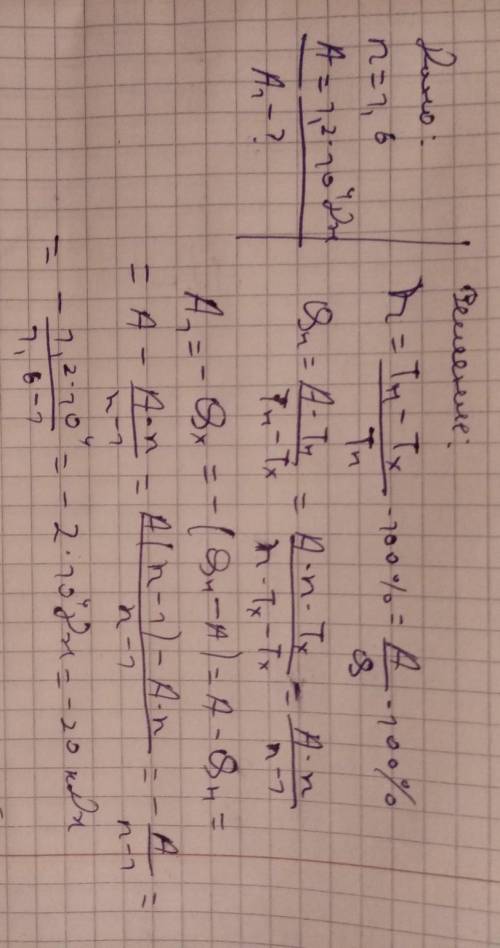 Дано:
n = 1,6
A = 1,2·10⁴ Дж
A₁ - ?
Решение:
η = (Tн - Tх)/Tн · 100% = A/Q · 100%
Qн = A·Tн/(Tн - Tх) = A·n·Tх/(n·Tх - Tх) = A·n/(n-1)
A₁ = - Qх = - (Qн - A) = A - Qн =
= A - A·n/(n-1) = (A(n-1) - A·n)/(n-1) = - A/(n-1) =
= - 1,2·10⁴/(1,6-1) = - 2·10⁴ Дж = -20 кДж